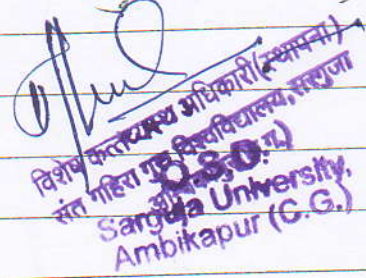 विशेष कर्त्तव्यस्थ अधिकारी(स्थापना)
संत गहिरा गुरू विश्वविद्यालय, सरगुजा
O.S.D.
Sarguja University,
Ambikapur (C.G.)